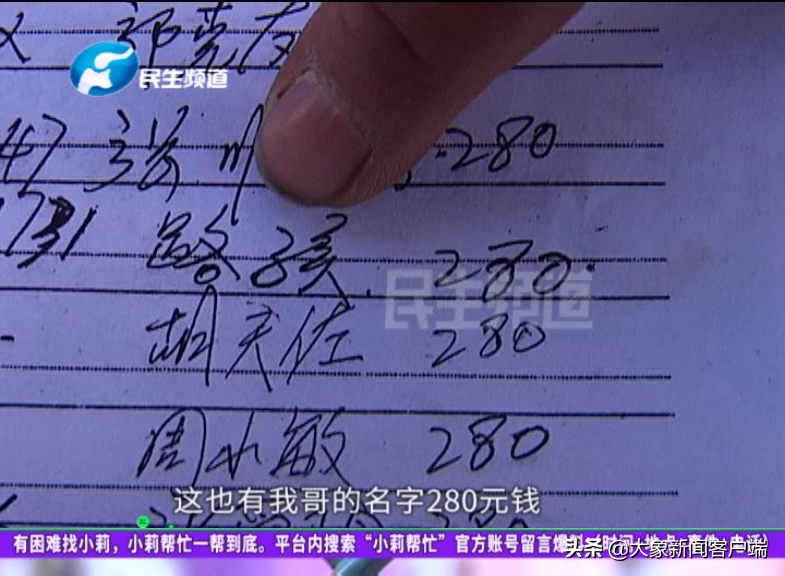 民生频道
47 张川 280
731 路孩 280
民生频道
胡天佐 280
周水敏 280
这也有我哥的名字280元钱
有困难找小莉，小莉帮忙一帮到底。平台内搜索“小莉帮忙”官方账号留言
头条 @大象新闻客户端